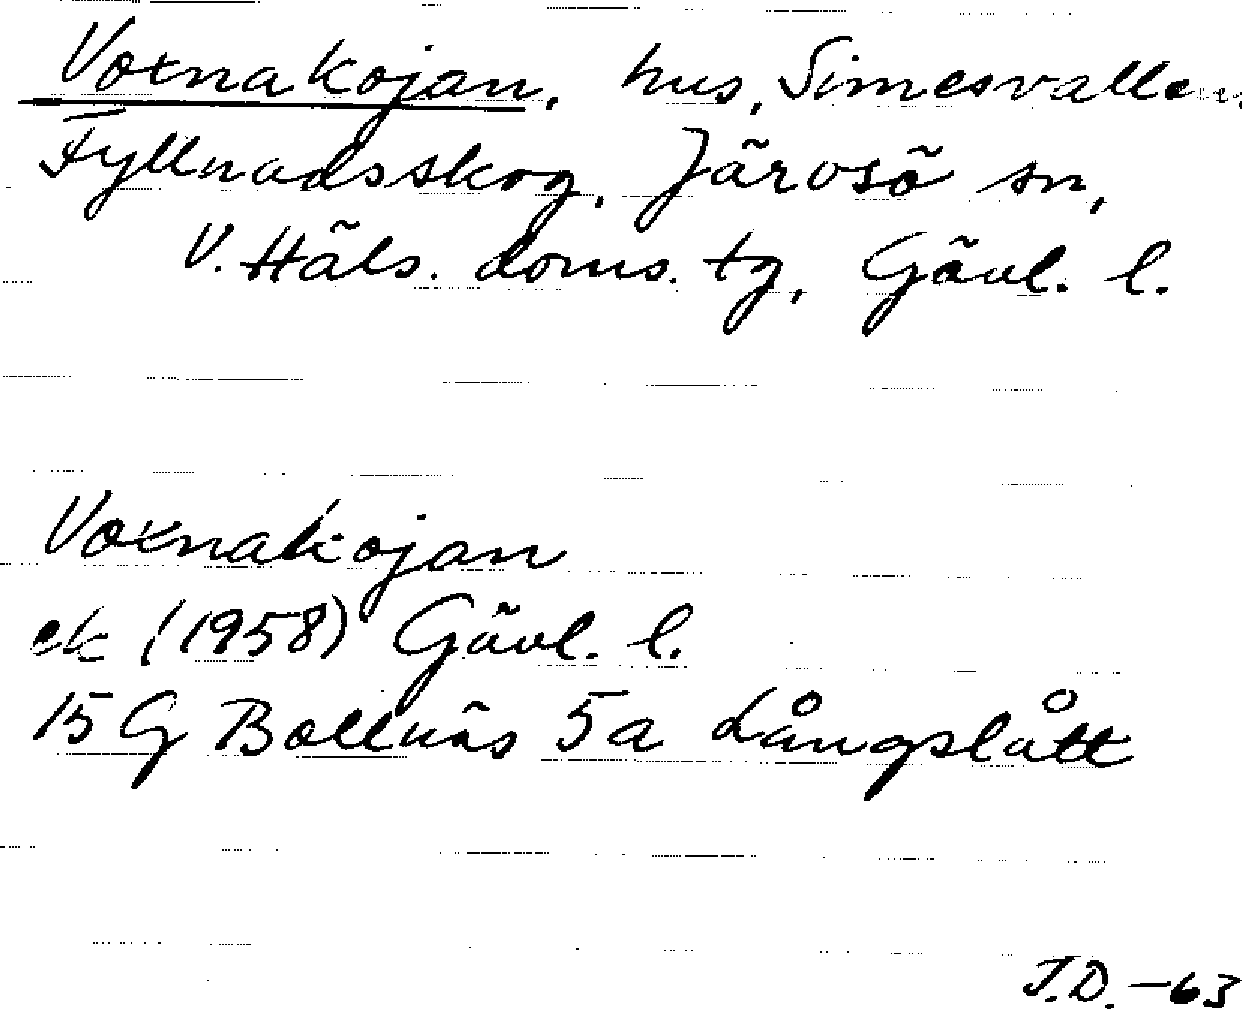 Voxnakojan, hus, Simesvallen,
Fyllnadsskog, Järvsö sn,
V. Häls. doms. tg, Gävl. l.
Voxnakojan
ek (1958) Gävl. l.
15 G Bollnäs 5a Långslått
J.D. -63